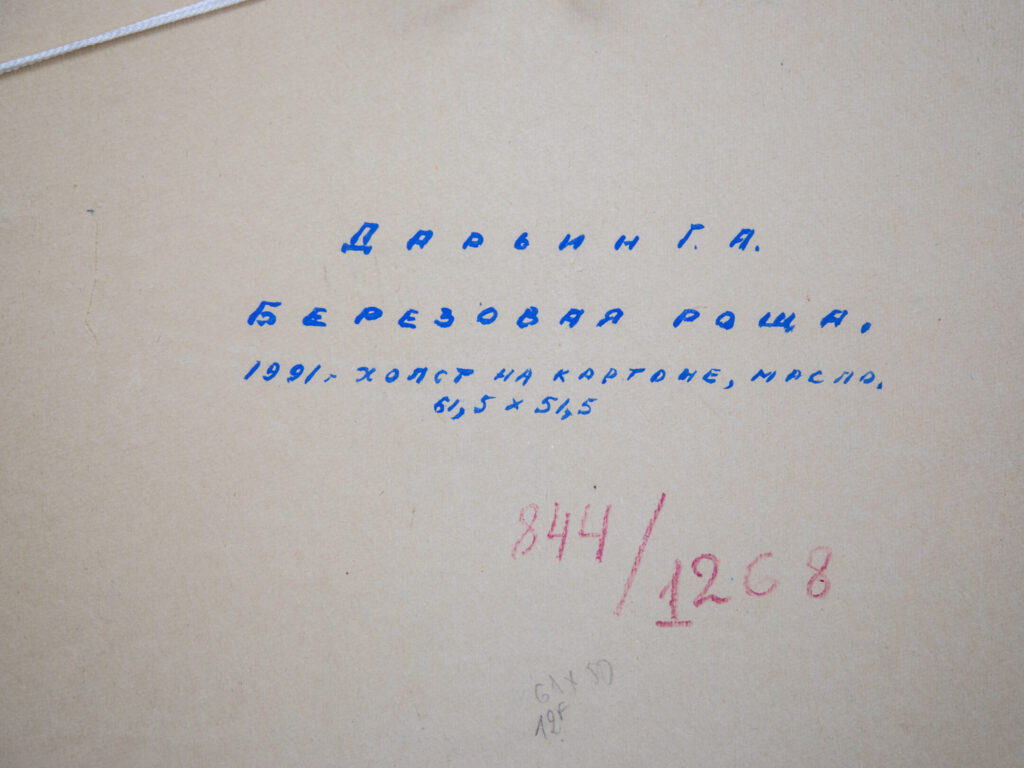 Дарьин Г. А.
Березовая роща.
1991г. холст на картоне, масло.
61,5 x 51,5
844/1268
61 x 50
12F